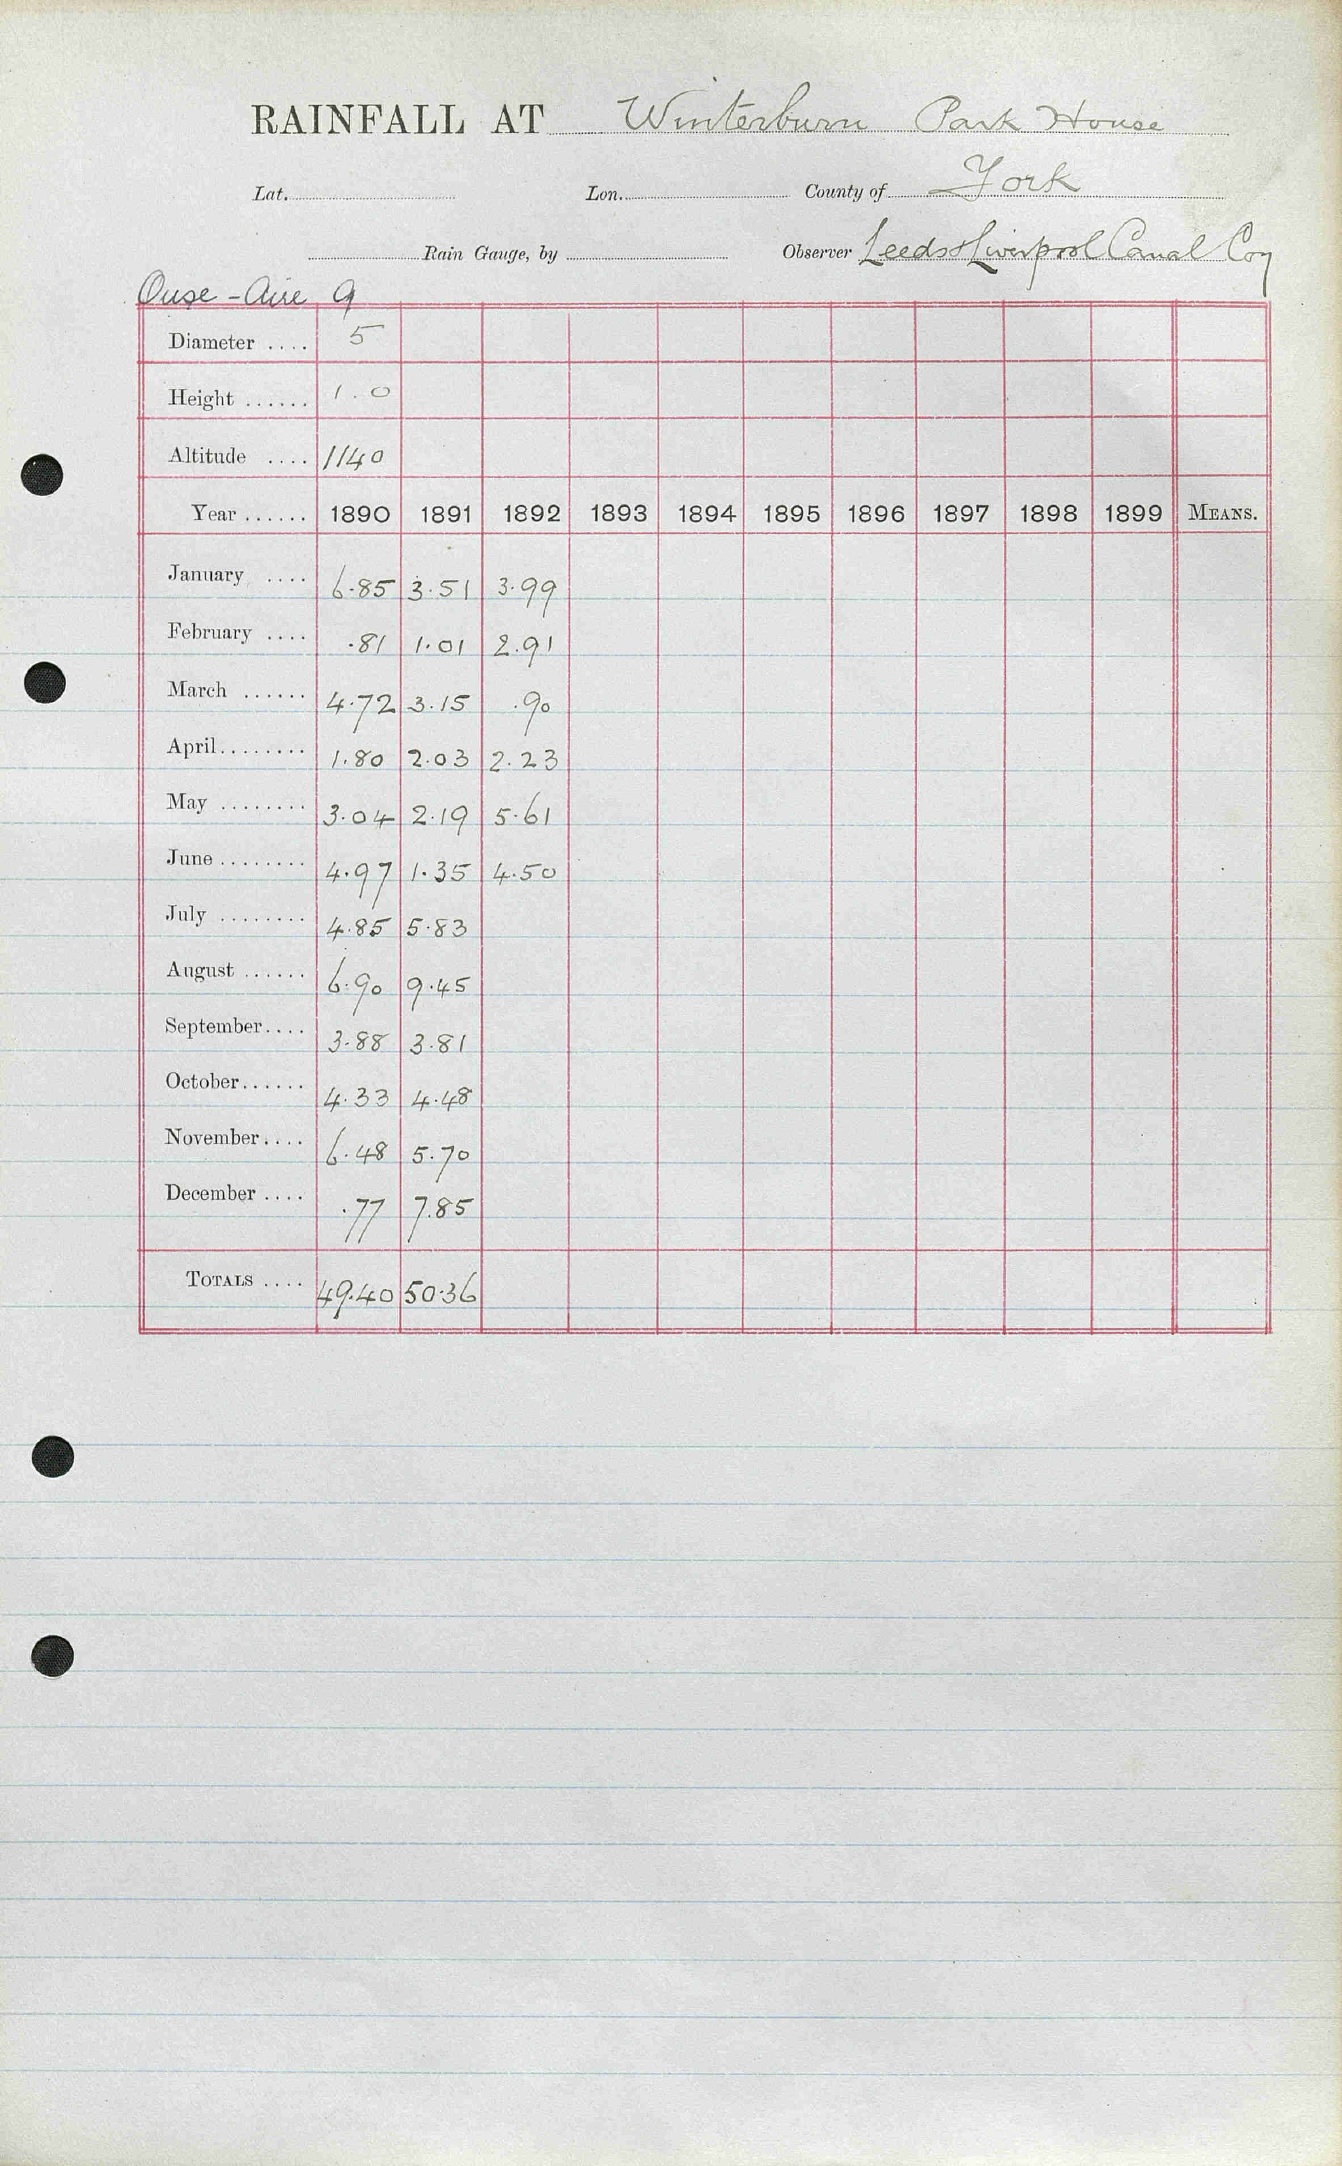 RAINFALL AT Winterburn Park House
Lat. Lon. County of York
Rain Gauge, by Observer Leeds & Liverpool Canal Coy
Ouse - Aire 9
Diameter .... 5
Height ...... 1.0
Altitude .... 1140
Year ...... 1890 1891 1892 1893 1894 1895 1896 1897 1898 1899 MEANS.
January .... 6.85 3.51 3.99
February .... .81 1.01 2.91
March ...... 4.72 3.15 .90
April ........ 1.80 2.03 2.23
May ........ 3.04 2.19 5.61
June ........ 4.97 1.35 4.50
July ........ 4.85 5.83
August ...... 6.90 9.45
September .... 3.88 3.81
October ...... 4.33 4.48
November .... 6.48 5.70
December .... .77 7.85
TOTALS .... 49.40 50.36